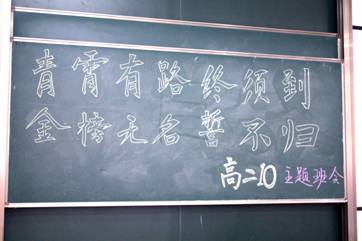 青霄有路终须到
金榜无名誓不归
高二10 主题班会